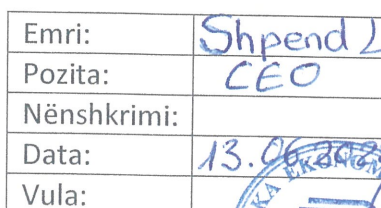 Emri: Shpend
Pozita: CEO
Nënshkrimi:
Data: 13.06.202
Vula: